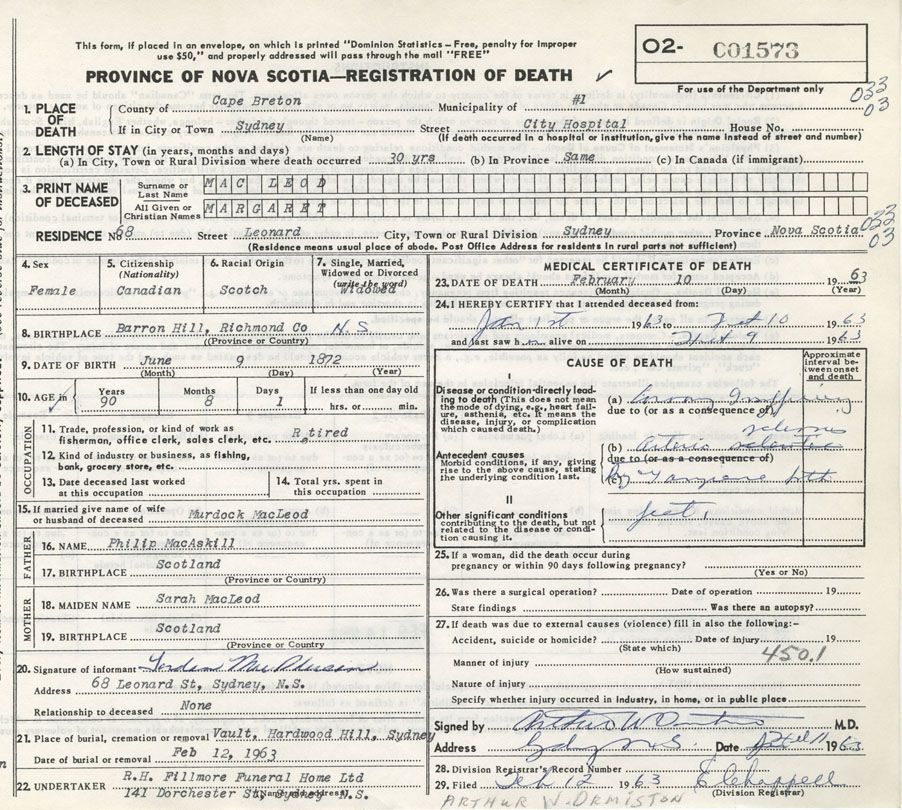 This form, if placed in an envelope, on which is printed "Dominion Statistics – Free, penalty for improper
use $50," and properly addressed will pass through the mail "FREE"
O2- C01573
For use of the Department only
PROVINCE OF NOVA SCOTIA—REGISTRATION OF DEATH ✓
033
03
1. PLACE OF DEATH
County of Cape Breton Municipality of #1
If in City or Town Sydney Street City Hospital House No.
(Name) (If death occurred in a hospital or institution, give the name instead of street and number)
2. LENGTH OF STAY (in years, months and days)
(a) In City, Town or Rural Division where death occurred 30 yrs (b) In Province Same (c) In Canada (if immigrant)
3. PRINT NAME OF DECEASED
Surname or Last Name MAC LEOD
All Given or Christian Names MARGARET
RESIDENCE No 68 Street Leonard City, Town or Rural Division Sydney Province Nova Scotia
033
03
(Residence means usual place of abode. Post Office Address for residents in rural parts not sufficient)
4. Sex
Female
5. Citizenship (Nationality)
Canadian
6. Racial Origin
Scotch
7. Single, Married, Widowed or Divorced (write the word)
Widowed
8. BIRTHPLACE Barron Hill, Richmond Co N.S.
(Province or Country)
9. DATE OF BIRTH June 9 1872
(Month) (Day) (Year)
10. AGE in Years Months Days If less than one day old
90 8 1 hrs. or min.
OCCUPATION
11. Trade, profession, or kind of work as
fisherman, office clerk, sales clerk, etc. R tired
12. Kind of industry or business, as fishing,
bank, grocery store, etc.
13. Date deceased last worked
at this occupation
14. Total yrs. spent in
this occupation
15. If married give name of wife
or husband of deceased Murdock MacLeod
FATHER
16. NAME Philip MacAskill
17. BIRTHPLACE Scotland
(Province or Country)
MOTHER
18. MAIDEN NAME Sarah MacLeod
19. BIRTHPLACE Scotland
(Province or Country
20. Signature of informant
Address 68 Leonard St, Sydney, N.S.
Relationship to deceased None
21. Place of burial, cremation or removal Vault, Hardwood Hill, Sydney
Date of burial or removal Feb 12, 1963
22. UNDERTAKER R.H. Fillmore Funeral Home Ltd
141 Dorchester St, Sydney N.S.
MEDICAL CERTIFICATE OF DEATH
23. DATE OF DEATH February 10 1963
(Month) (Day) (Year)
24. I HEREBY CERTIFY that I attended deceased from:
Jan 1st 1963 to Feb 10 1963
and last saw h alive on Feb 9 1963
CAUSE OF DEATH
Approximate interval between onset and death
I
Disease or condition directly leading to death (This does not mean the mode of dying, e.g., heart failure, asthenia, etc. It means the disease, injury, or complication which caused death.)
(a)
due to (or as a consequence of)
Antecedent causes
Morbid conditions, if any, giving rise to the above cause, stating the underlying condition last.
(b) sclerosis
due to (or as a consequence of)
(c) Gangrene both
II
Other significant conditions contributing to the death, but not related to the disease or condition causing it.
feet.
25. If a woman, did the death occur during
pregnancy or within 90 days following pregnancy?
(Yes or No)
26. Was there a surgical operation? Date of operation 19
State findings Was there an autopsy?
27. If death was due to external causes (violence) fill in also the following:-
Accident, suicide or homicide? Date of injury 19
(State which)
450.1
Manner of injury
(How sustained)
Nature of injury
Specify whether injury occurred in industry, in home, or in public place
Signed by Arthur W Ormiston M.D.
Address Sydney N.S. Date Feb 11 1963
28. Division Registrar's Record Number
29. Filed Feb 12 1963 E Chappell
(Division Registrar)
ARTHUR W. ORMISTON